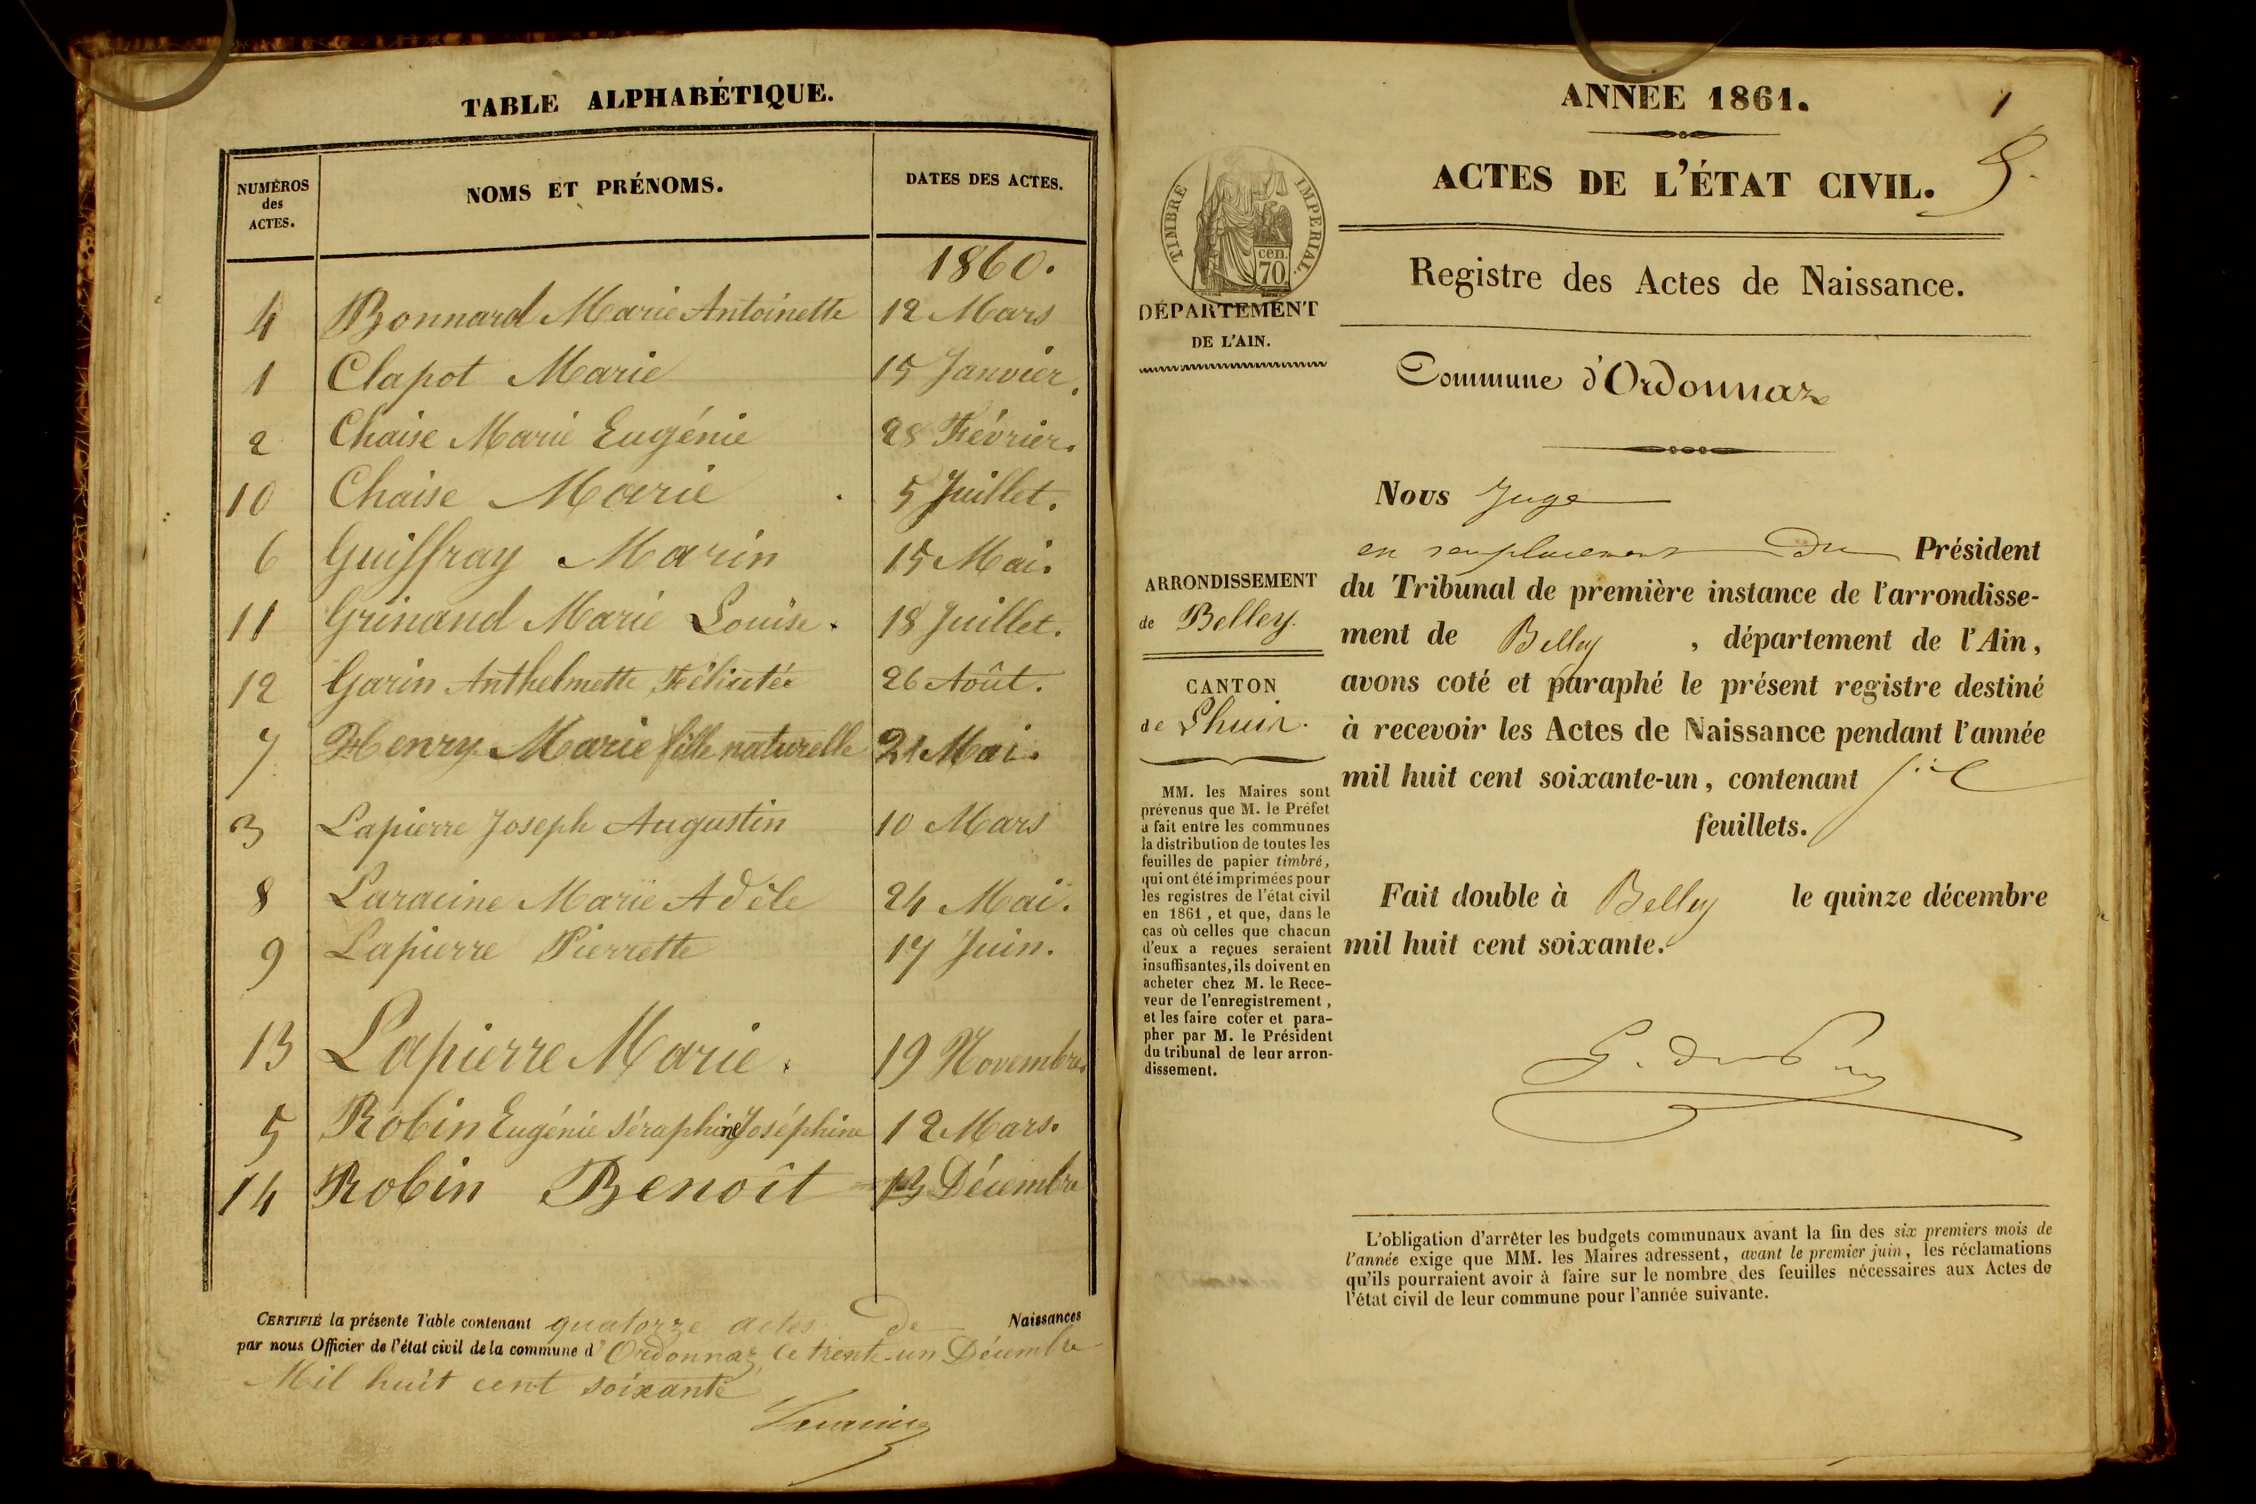 TABLE ALPHABÉTIQUE.
NUMÉROS des ACTES. NOMS ET PRÉNOMS. DATES DES ACTES.
1860.
4 Bonnard Marie Antoinette 12 Mars
1 Clapot Marie 15 Janvier.
2 Chaise Marie Eugénie 28 Février.
10 Chaise Marie 5 Juillet.
6 Guiffray Marin 15 Mai.
11 Grinand Marie Louise. 18 Juillet.
12 Garin Anthelmette Félicitée 26 Août.
7 Henry Marie fille naturelle 21 Mai.
3 Lapierre Joseph Augustin 10 Mars
8 Laracine Marie Adèle 24 Mai.
9 Lapierre Pierrette 17 Juin.
13 Lapierre Marie. 19 Novembre.
5 Robin Eugénie Séraphine Joséphine 12 Mars.
14 Robin Benoît Décembre
CERTIFIÉ la présente Table contenant quatorze actes de Naissances
par nous Officier de l'état civil de la commune d' Ordonnaz, le trente-un Décembre
Mil huit cent soixante
ANNÉE 1861.
1
ACTES DE L'ÉTAT CIVIL.
TIMBRE IMPERIAL.
cen.
70
Registre des Actes de Naissance.
DÉPARTEMENT
DE L'AIN.
Commune d'Ordonnaz
ARRONDISSEMENT
de Belley.
CANTON
de Lhuis.
MM. les Maires sont
prévenus que M. le Préfet
a fait entre les communes
la distribution de toutes les
feuilles de papier timbré,
qui ont été imprimées pour
les registres de l'état civil
en 1861, et que, dans le
cas où celles que chacun
d'eux a reçues seraient
insuffisantes, ils doivent en
acheter chez M. le Rece-
veur de l'enregistrement,
et les faire coter et para-
pher par M. le Président
du tribunal de leur arron-
dissement.
Nous Juge
en remplacement du Président
du Tribunal de première instance de l'arrondisse-
ment de Belley, département de l'Ain,
avons coté et paraphé le présent registre destiné
à recevoir les Actes de Naissance pendant l'année
mil huit cent soixante-un, contenant
feuillets.
Fait double à Belley le quinze décembre
mil huit cent soixante.
L'obligation d'arrêter les budgets communaux avant la fin des six premiers mois de
l'année exige que MM. les Maires adressent, avant le premier juin, les réclamations
qu'ils pourraient avoir à faire sur le nombre des feuilles nécessaires aux Actes de
l'état civil de leur commune pour l'année suivante.